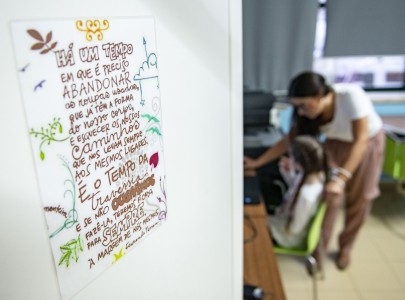 HÁ UM TEMPO
EM QUE É PRECISO
ABANDONAR
AS ROUPAS USADAS,
QUE JÁ TÊM A FORMA
DO NOSSO CORPO,
E ESQUECER OS NOSSOS
CAMINHOS
QUE NOS LEVAM SEMPRE
AOS MESMOS LUGARES.
É O TEMPO DA
travessia
E SE NÃO OUSARMOS
FAZÊ-LA, TEREMOS FICADO,
PARA SEMPRE
À MARGEM DE NÓS MESMOS.